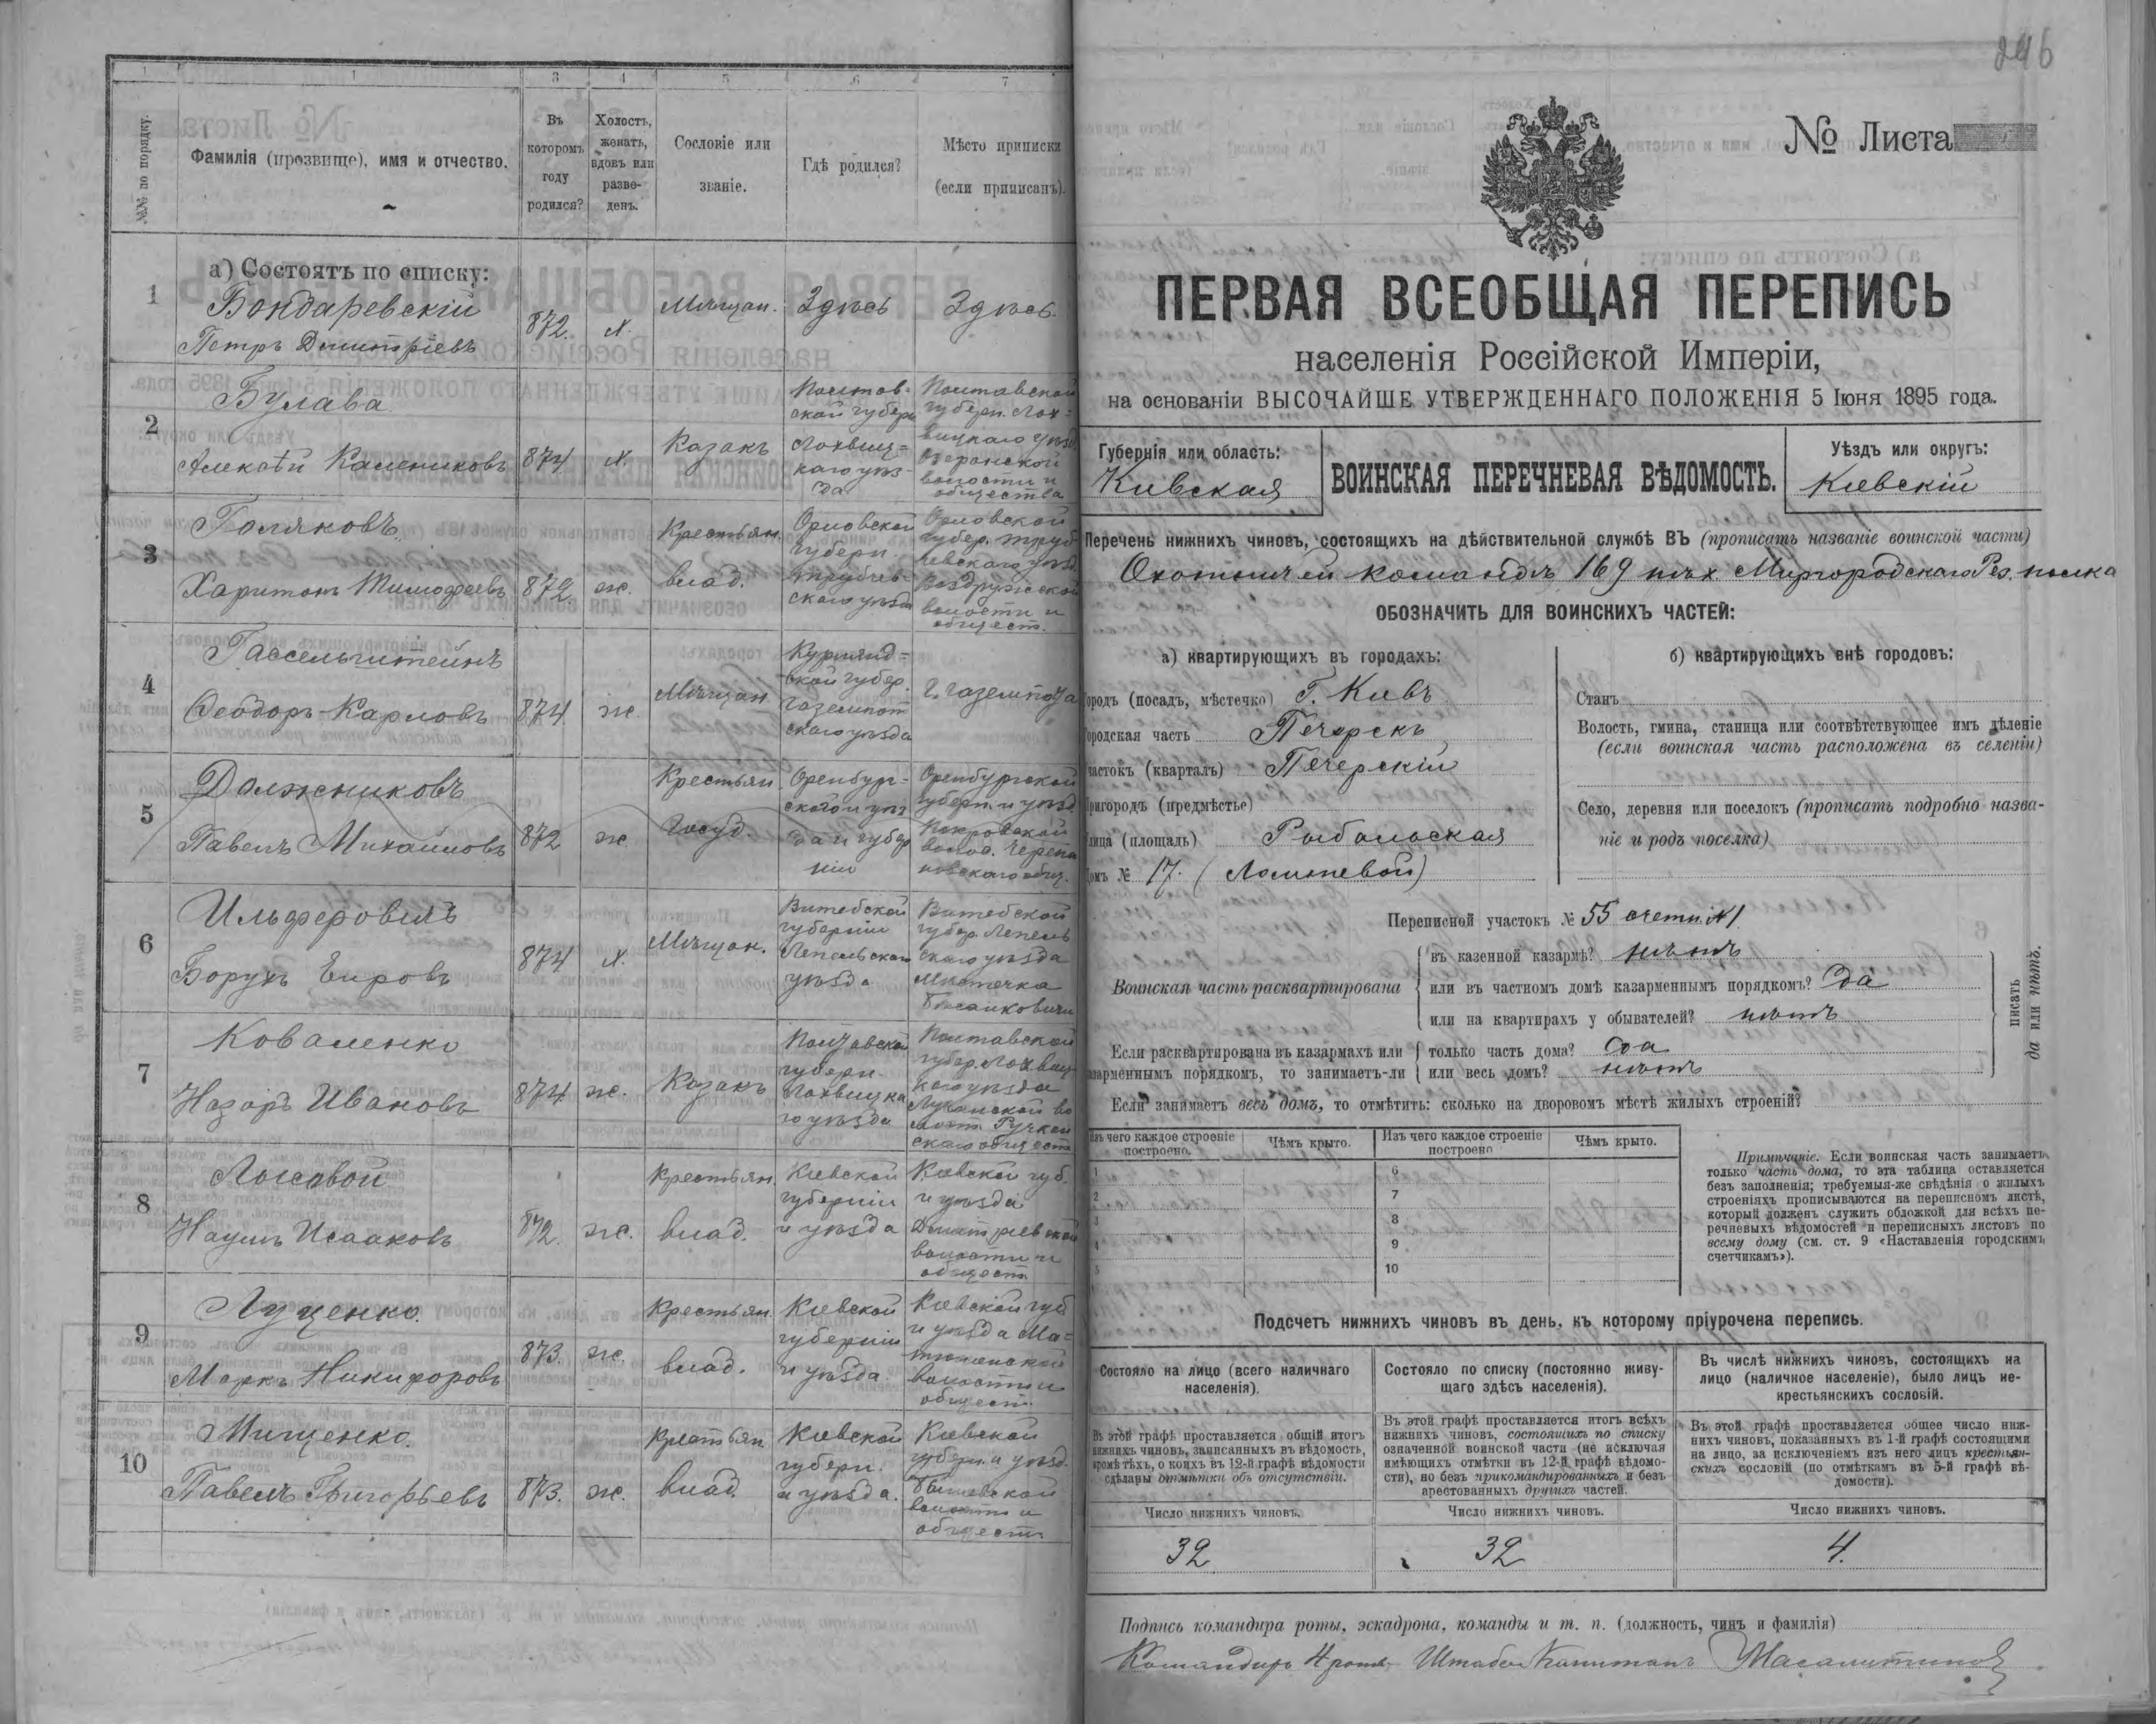 1 1 3 4 5 6 7
№№ по порядку.
Фамилія (прозвище), имя и отчество.
Въ которомъ году родился?
Холостъ, женатъ, вдовъ или разве-денъ.
Сословіе или званіе.
Гдѣ родился?
Мѣсто приписки (если приписанъ).
а) Состоятъ по списку:
1
Бондаревскій
Петръ Дмитріевъ
872. х. Мѣщан. Здѣсь Здѣсь
2
Булава
Алексѣй Калениковъ
874 х. Казакъ
Полтав-
ской губерн
Лохвиц-
каго уѣз-
да
Полтавской
губерн. Лох-
вицкаго уѣзд
волости и
общества
3
Голяковъ
Харитонъ Тимофеевъ
872 ж.
Крестьян.
влад.
Орловской
губерн.
Трубчев-
скаго уѣзда
Орловской
губер. Труб
чевскаго уѣзд
волости и
общест.
4
Гассельштейнъ
Ѳеодоръ Карловъ
874 ж. Мѣщан
Курлянд-
ской губер.
Газенпот
скаго уѣзда
г. Газенпота
5
Должниковъ
Павелъ Михайловъ
872 ж.
Крестьян
Госуд.
Оренбург-
скаго уѣз
да и губер
ніи
Оренбургской
губерн. и уѣзд.
Покровской
волос.
6
Ильферовичъ
Борухъ Еировъ
874 х. Мѣщан.
Витебской
губерніи
Лепельскаго
уѣзда
Витебской
губер. Лепель
скаго уѣзда
Мѣстечка
7
Коваленко
Назаръ Ивановъ
874 ж. Казакъ
Полтавской
губерн.
Лохвицка
го уѣзда
Полтавской
губер. Лохвиц
каго уѣзда
8
Лысавой
Наумъ Исааковъ
872. ж.
Крестьян.
влад.
Кіевской
губерніи
и уѣзда
Кіевской губ.
и уѣзда
Дмитріевской
волости и
общест.
9
Луценко.
Маркъ Никифоровъ
873. ж.
Крестьян.
влад.
Кіевской
губерніи
и уѣзда
Кіевской губ
и уѣзда
волости и
общест.
10
Мищенко.
Павелъ Григорьевъ
873. ж.
Крестьян.
влад.
Кіевской
губерн.
и уѣзда.
Кіевской
губерн. и уѣзд.
волости и
общест.
246
№ Листа
ПЕРВАЯ ВСЕОБЩАЯ ПЕРЕПИСЬ
населенія Россійской Имперіи,
на основаніи ВЫСОЧАЙШЕ УТВЕРЖДЕННАГО ПОЛОЖЕНІЯ 5 Іюня 1895 года.
Губернія или область:
Кіевская
ВОИНСКАЯ ПЕРЕЧНЕВАЯ ВѢДОМОСТЬ.
Уѣздъ или округъ:
Кіевскій
Перечень нижнихъ чиновъ, состоящихъ на дѣйствительной службѣ ВЪ (прописать названіе воинской части)
Охотничей командѣ 169 пѣх Миргородскаго Рез. полка
ОБОЗНАЧИТЬ ДЛЯ ВОИНСКИХЪ ЧАСТЕЙ:
а) квартирующихъ въ городахъ:
ородъ (посадъ, мѣстечко) Г. Кіевъ
ородская часть Печерскъ
частокъ (кварталъ) Печерскій
ригородъ (предмѣстье)
лица (площадь) Рыбальская
домъ № 17. (Ломневой)
б) квартирующихъ внѣ городовъ:
Станъ
Волость, гмина, станица или соотвѣтствующее имъ дѣленіе
(если воинская часть расположена въ селеніи)
Село, деревня или поселокъ (прописать подробно назва-
ніе и родъ поселка)
Переписной участокъ № 55 счетн. № 1
Воинская часть расквартирована
въ казенной казармѣ? нѣтъ
или въ частномъ домѣ казарменнымъ порядкомъ? да
или на квартирахъ у обывателей? нѣтъ
Если расквартирована въ казармахъ или
зарменнымъ порядкомъ, то занимаетъ-ли
только часть дома? да
или весь домъ? нѣтъ
писать да или нѣтъ.
Если занимаетъ весь домъ, то отмѣтить: сколько на дворовомъ мѣстѣ жилыхъ строеній?
Изъ чего каждое строеніе построено. Чѣмъ крыто. Изъ чего каждое строеніе построено Чѣмъ крыто.
1 6
2 7
3 8
4 9
5 10
Примѣчаніе. Если воинская часть занимаетъ
только часть дома, то эта таблица оставляется
безъ заполненія; требуемыя-же свѣдѣнія о жилыхъ
строеніяхъ прописываются на переписномъ листѣ,
который долженъ служить обложкой для всѣхъ пе-
речневыхъ вѣдомостей и переписныхъ листовъ по
всему дому (см. ст. 9 «Наставленія городскимъ
счетчикамъ»).
Подсчетъ нижнихъ чиновъ въ день, къ которому пріурочена перепись.
Состояло на лицо (всего наличнаго
населенія).
Въ этой графѣ проставляется общій итогъ
нижнихъ чиновъ, записанныхъ въ вѣдомость,
кромѣ тѣхъ, о коихъ въ 12-й графѣ вѣдомости
сдѣланы отмѣтки объ отсутствіи.
Число нижнихъ чиновъ.
32
Состояло по списку (постоянно живу-
щаго здѣсь населенія).
Въ этой графѣ проставляется итогъ всѣхъ
нижнихъ чиновъ, состоящихъ по списку
означенной воинской части (не исключая
имѣющихъ отмѣтки въ 12-й графѣ вѣдомо-
сти), но безъ прикомандированныхъ и безъ
арестованныхъ другихъ частей.
Число нижнихъ чиновъ.
32
Въ числѣ нижнихъ чиновъ, состоящихъ на
лицо (наличное населеніе), было лицъ не-
крестьянскихъ сословій.
Въ этой графѣ проставляется общее число ниж-
нихъ чиновъ, показанныхъ въ 1-й графѣ состоящими
на лицо, за исключеніемъ изъ него лицъ крестьян-
скихъ сословій (по отмѣткамъ въ 5-й графѣ вѣ-
домости).
Число нижнихъ чиновъ.
4.
Подпись командира роты, эскадрона, команды и т. п. (должность, чинъ и фамилія)
Командиръ 4 роты Штабсъ Капитанъ Масалитиновъ